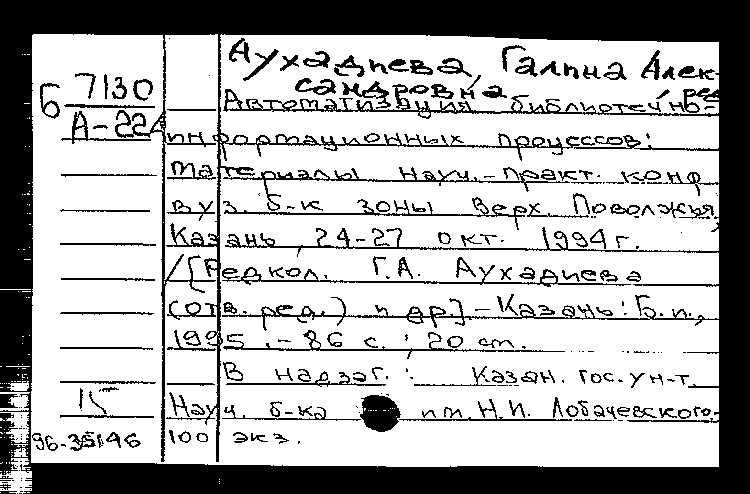 Аухадиева, Галина Алек-
сандровна, ред.
Б 7130
А-22
Автоматизация библиотечно-
информационных процессов:
Материалы науч.-практ. конф
вуз. б-к зоны Верх. Поволжья,
Казань, 24-27 окт. 1994 г.
/[Редкол. Г.А. Аухадиева
(отв. ред.) и др.]-Казань: Б.и.,
1995.-86 с.; 20 см.
В надзаг.: Казан. гос. ун-т.
Науч. б-ка им. Н.И. Лобачевского.-
96-35146 100 экз.